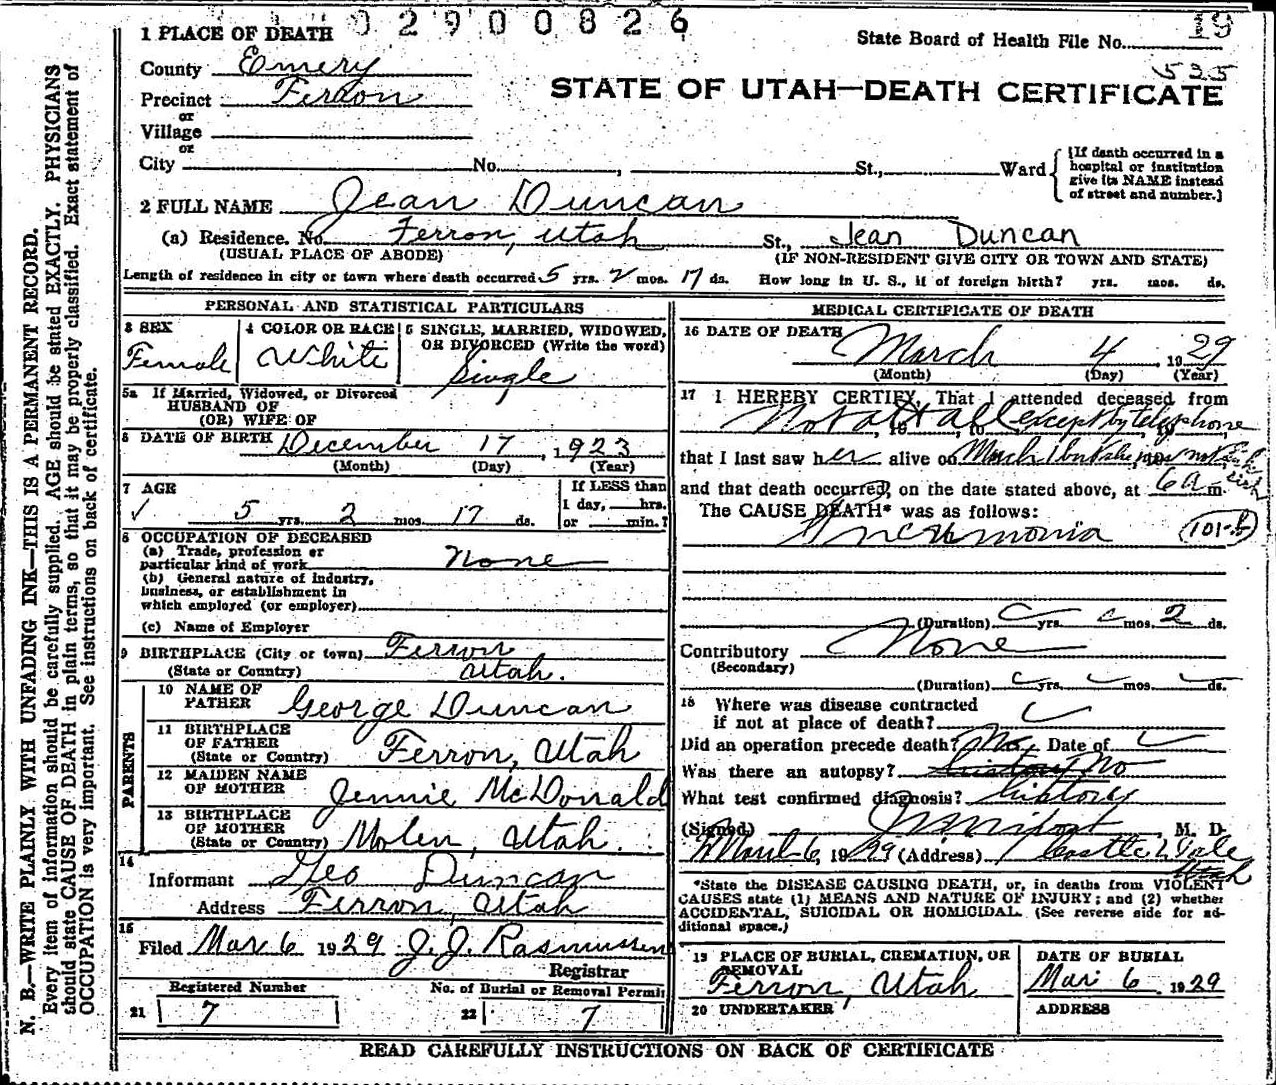 0 2 9 0 0 8 2 6
19
1 PLACE OF DEATH
State Board of Health File No.
County Emery
535
Precinct Ferron
STATE OF UTAH—DEATH CERTIFICATE
or
Village
or
City No. , St., Ward
[If death occurred in a
hospital or institution
give its NAME instead
of street and number.]
2 FULL NAME Jean Duncan
(a) Residence. No. Ferron, Utah St., Jean Duncan
(USUAL PLACE OF ABODE) (IF NON-RESIDENT GIVE CITY OR TOWN AND STATE)
Length of residence in city or town where death occurred 5 yrs. 2 mos. 17 ds. How long in U. S., if of foreign birth? yrs. mos. ds.
PERSONAL AND STATISTICAL PARTICULARS
3 SEX
Female
4 COLOR OR RACE
White
5 SINGLE, MARRIED, WIDOWED,
OR DIVORCED (Write the word)
Single
5a If Married, Widowed, or Divorced
HUSBAND OF
(OR) WIFE OF
6 DATE OF BIRTH December 17, 1923
(Month) (Day) (Year)
7 AGE
5 yrs. 2 mos. 17 ds.
If LESS than
1 day, hrs.
or min.?
8 OCCUPATION OF DECEASED
(a) Trade, profession or
particular kind of work None
(b) General nature of industry,
business, or establishment in
which employed (or employer)
(c) Name of Employer
9 BIRTHPLACE (City or town) Ferron
(State or Country) Utah.
PARENTS
10 NAME OF
FATHER George Duncan
11 BIRTHPLACE
OF FATHER
(State or Country) Ferron, Utah
12 MAIDEN NAME
OF MOTHER Jennie McDonald
13 BIRTHPLACE
OF MOTHER
(State or Country) Molen, Utah.
14
Informant Geo Duncan
Address Ferron, Utah
15
Filed Mar 6 1929 J. J. Rasmussen
Registrar
Registered Number
21 7
No. of Burial or Removal Permit
22 7
MEDICAL CERTIFICATE OF DEATH
16 DATE OF DEATH
March 4, 1929
(Month) (Day) (Year)
17 I HEREBY CERTIFY, That I attended deceased from
Not at all except by telephone
that I last saw her alive on March 1 but she was not
sick
and that death occurred, on the date stated above, at 6 a m.
The CAUSE DEATH* was as follows:
Pneumonia 101-b
(Duration) yrs. mos. 2 ds.
Contributory None
(Secondary)
(Duration) yrs. mos. ds.
18 Where was disease contracted
if not at place of death?
Did an operation precede death? No. Date of
Was there an autopsy? history No
What test confirmed diagnosis? history
(Signed) , M. D.
March 6, 1929 (Address) Castle Dale
Utah
*State the DISEASE CAUSING DEATH, or, in deaths from VIOLENT
CAUSES state (1) MEANS AND NATURE OF INJURY; and (2) whether
ACCIDENTAL, SUICIDAL OR HOMICIDAL. (See reverse side for ad-
ditional space.)
19 PLACE OF BURIAL, CREMATION, OR
REMOVAL
Ferron, Utah
DATE OF BURIAL
Mar 6 1929
20 UNDERTAKER
ADDRESS
READ CAREFULLY INSTRUCTIONS ON BACK OF CERTIFICATE
N. B.—WRITE PLAINLY WITH UNFADING INK—THIS IS A PERMANENT RECORD.
Every item of information should be carefully supplied. AGE should be stated EXACTLY. PHYSICIANS
should state CAUSE OF DEATH in plain terms, so that it may be properly classified. Exact statement of
OCCUPATION is very important. See instructions on back of certificate.